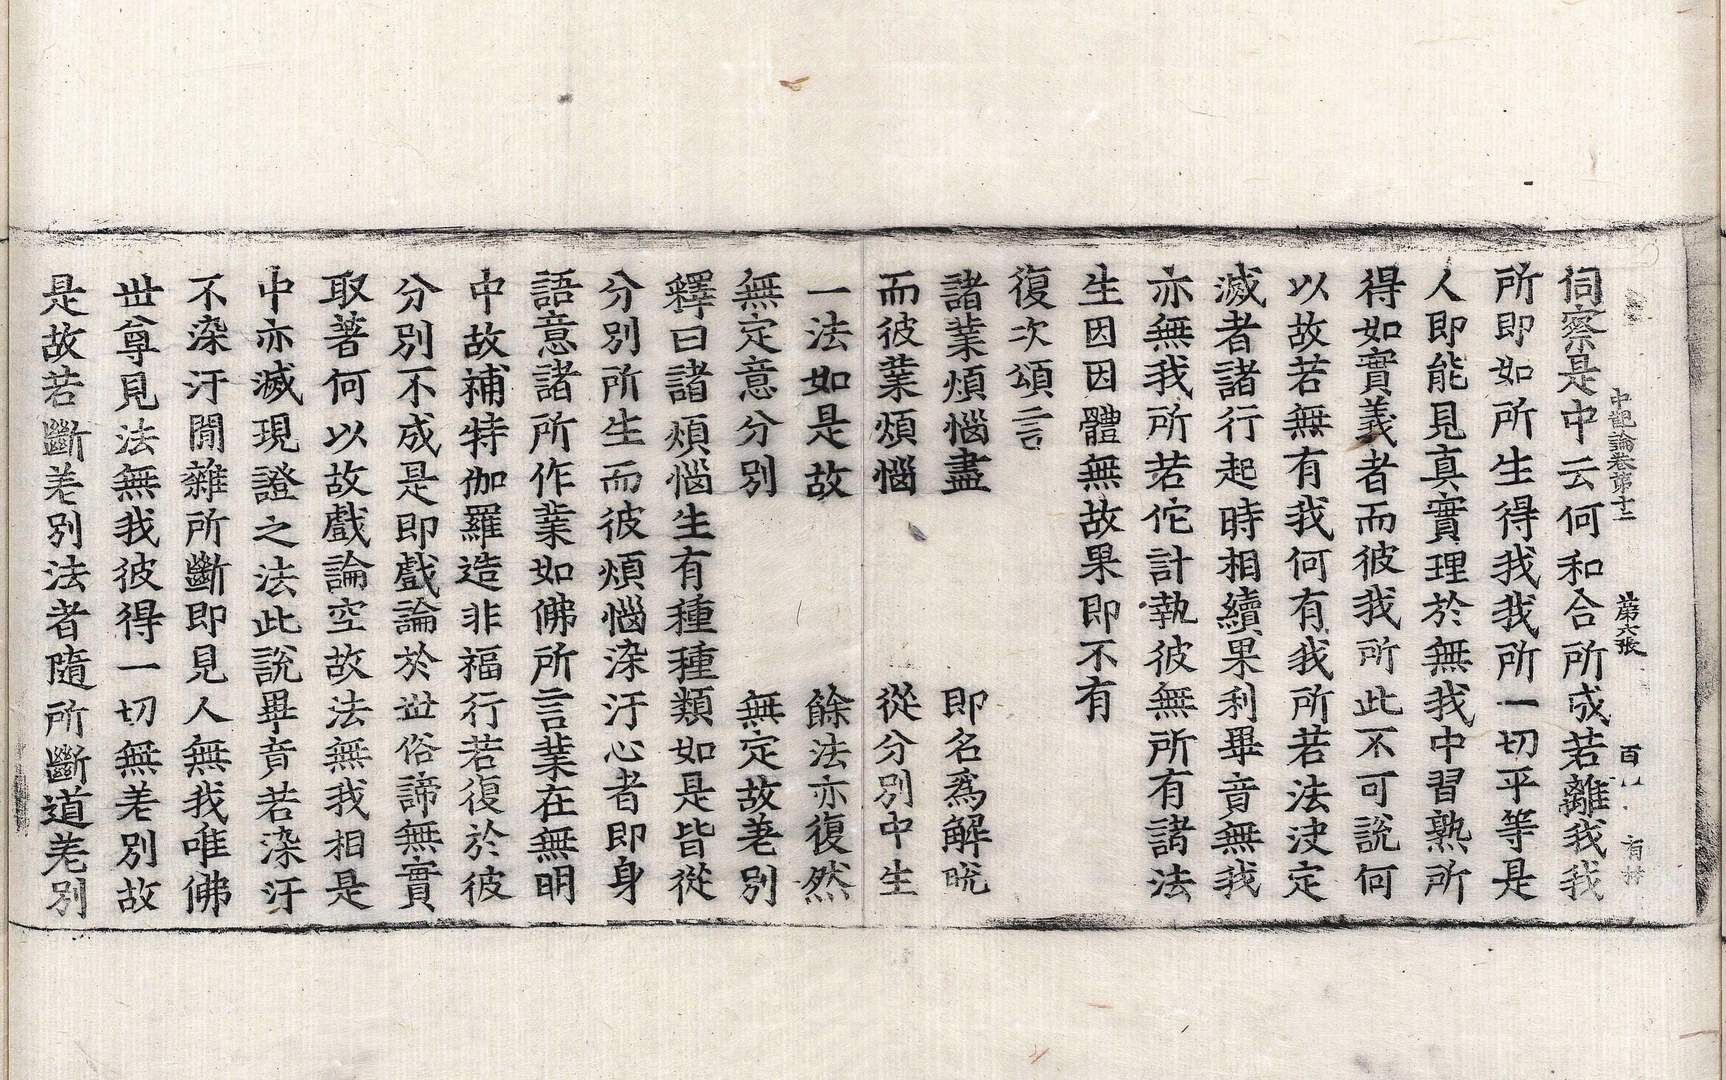 中觀論卷第十二 第六張 百
伺察是中云何和合所成若離我我
所即如所生得我我所一切平等是
人即能見真實理於無我中習熟所
得如實義者而彼我所此不可說何
以故若無有我何有我所若法決定
滅者諸行起時相續果利畢音無我
亦無我所若佗計執彼無所有諸法
生因因體無故果即不有
復次頌言
諸業煩惱盡 即名爲解脫
而彼業煩惱 從分別中生
一法如是故 餘法亦復然
無定意分別 無定故差別
釋曰諸煩惱生有種種類如是皆從
分別所生而彼煩惱染汙心者即身
語意諸所作業如佛所言業在無明
中故補特伽羅造非福行若復於彼
分別不成是即戲論於世俗諦無實
取著何以故戲論空故法無我相是
中亦滅現證之法此說畢音若染汙
不染汙間雜所斷即見人無我唯佛
世尊見法無我彼得一切無差別故
是故若斷差別法者隨所斷道差別